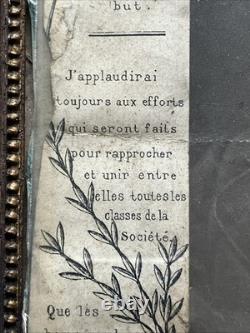 but.
J'applaudirai
toujours aux efforts
qui seront faits
pour rapprocher
et unir entre
elles toutes les
classes de la
Société.
Que les